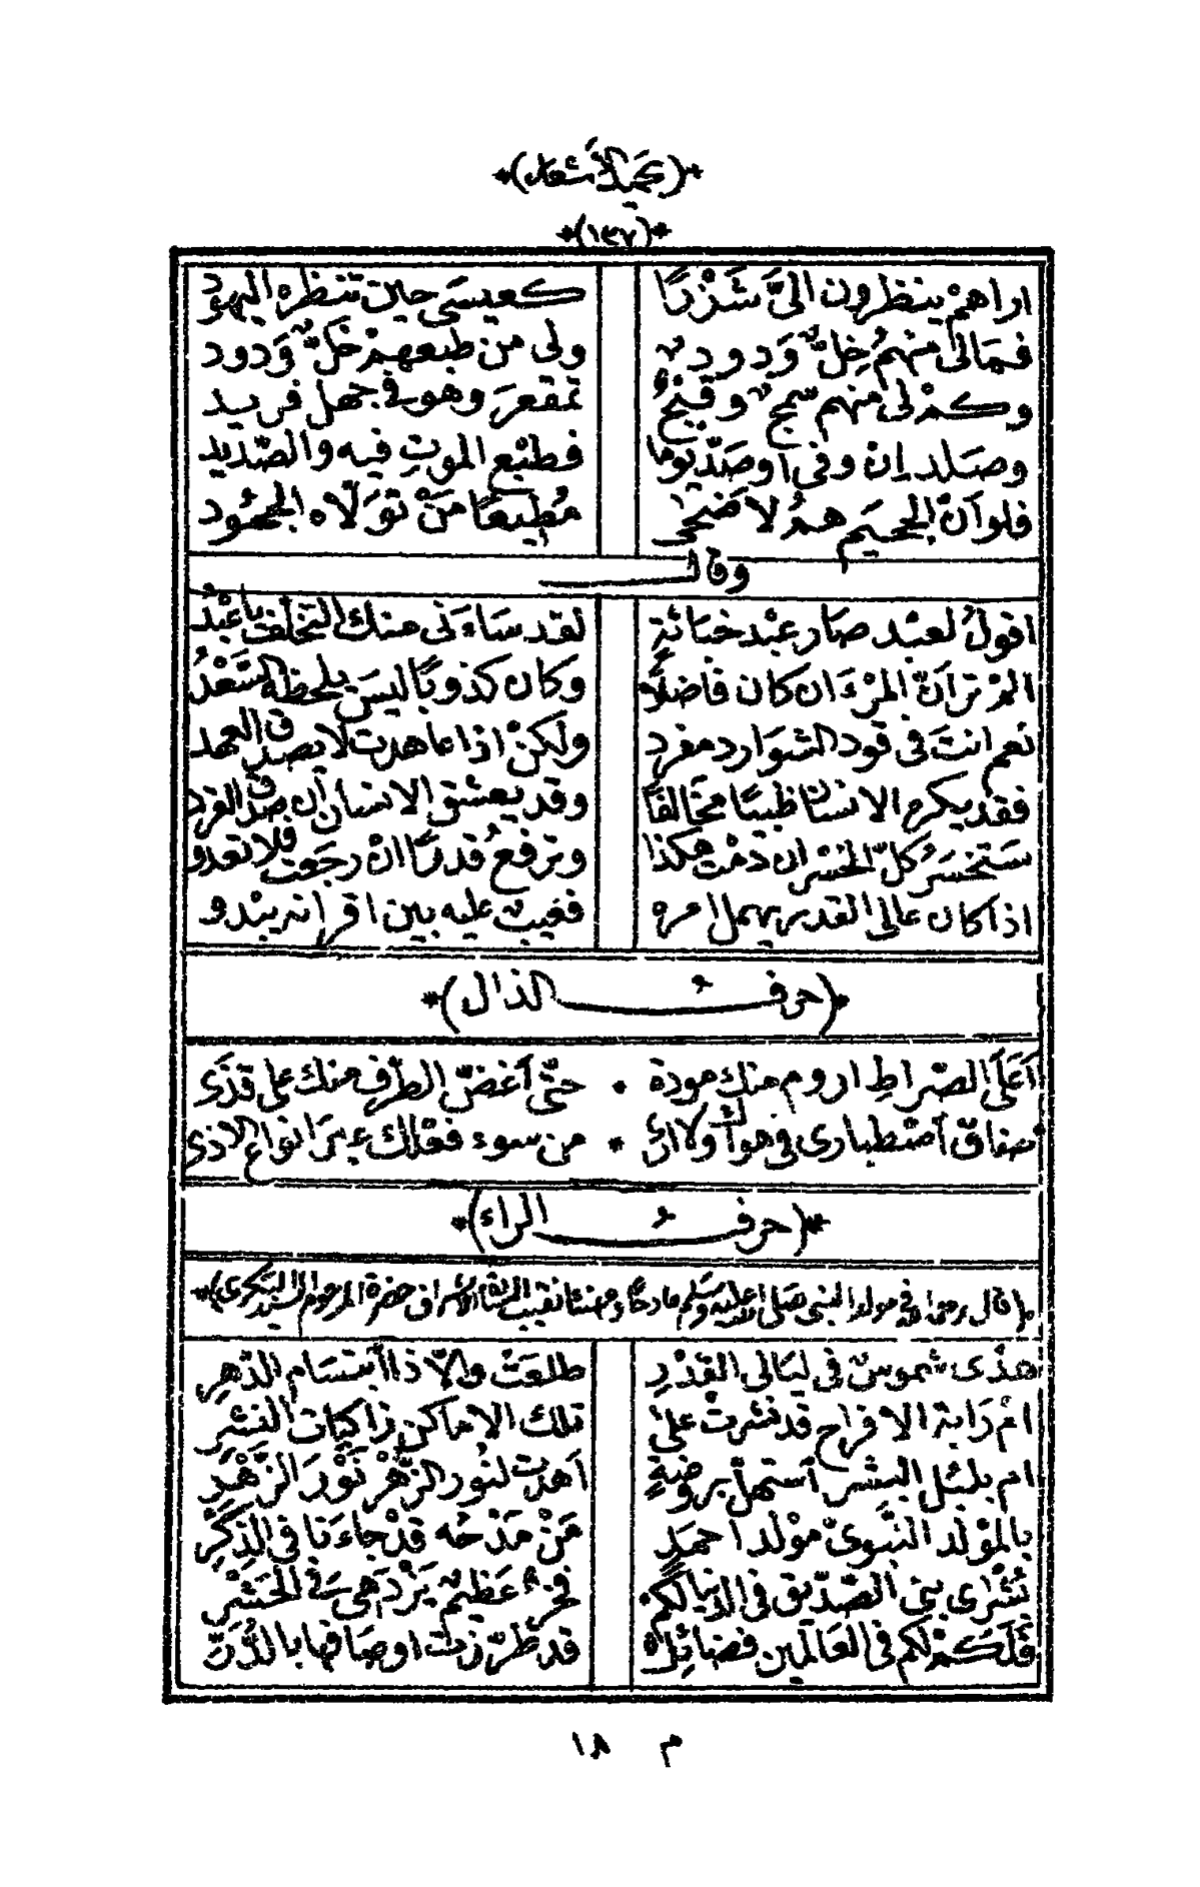 *(الأشعار)*
*(١٣٧)*
اراهمْ ينظرون الىَّ شَزْرًا كعيسَى حين تنظره اليهود
فمَالى منهمُ خِلٌّ وَدودٌ ولى من طبعهمْ خَلٌّ وَدود
وكمْ لى منهم سمجٌ وقبْحٌ تمقعرَ وهو فى جهل فريد
وصَلد اِنْ وفى اَوصَدّ يومًا فطبْع الموتِ فيه والصّديد
فلو اَنّ الجحيم همُ لاَضحى مُطِيعًا مَنْ تولّاه الجحُود
وقال
اقولُ لعبْد صَار عبْد خبَائةٍ لقد سَاءَنى منك التخلّف ياعَبْدُ
المْ ترَ اَنّ المرْءَ ان كان فاضلًا وكان كذوبًا ليسَ يلحظه السّعْدُ
نعم انتَ فى قود الشوارد مفرد ولكنْ اذا عاهدت لا يصدق العهد
فقد يكرم الانسَان ظبيًا مخالفًا وقد يعشق الانسان اِن صدق القرد
سَتخسَرُ كلّ الخسْر ان دمْت هكذا وترفعُ قدرًا انْ رجَعت فلا تعدو
اذا كان عالى القدر يهمل امره فغيبٌ عليه بين اقرانه يبْدو
*(حرفُ الذال)*
اَعَلَى الصّراطِ اروم منك مودة * حتّى اَغضّ الطّرف منك على قذَى
ضاق اَصْطبارى فى هواك ولا ارى * من سوء فعْلك غيرَ انواع الاذى
*(حرفُ الراء)*
*(قال يرحمه الله فى مولد النبى صلى الله عليه وسلم مادحًا ومهنئا نقيب السادة الاشراف حضرة المرحوم السيد البكرى)*
هذى شموسٌ فى ليَالى القدْرِ طلعَتْ والّا ذا اَبتسَام الدّهرِ
امْ رَاية الافراح قد نشرتْ على تلك الاماكن زاكيَات النشرِ
ام بلبُل البشْر اَستهلّ بروضةٍ اَهدت لنُور الزّهْر نَوْرَ الزّهْرِ
بالموْلد النّبَوىّ موْلد احمَدٍ مَنْ مَدْحُه قدْ جاءَنا فى الذِّكْرِ
بُشْرَاى بنى الصّدّيق فى الدّنيا لكم فخرٌ عَظيمٌ يَزْدَهى فى الحَشْرِ
فَلَكَمْ لكم فى العَالمين فضَائِلٌ قد طُرّزت اوصَافها بالدُّرّ
م ١٨